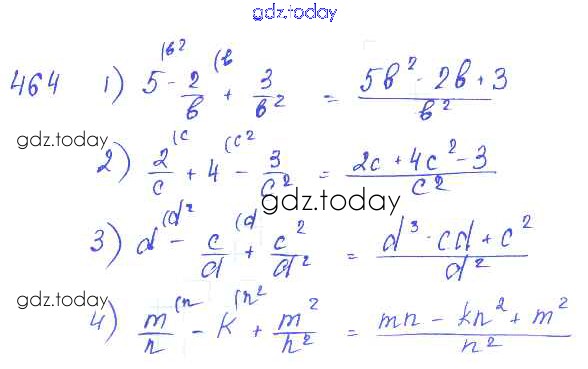 gdz.today
464 1) 5^(b² - 2/b^(b + 3/b² = (5b² - 2b + 3)/b²
gdz.today
2) 2/c^(c + 4^(c² - 3/c² = (2c + 4c² - 3)/c²
gdz.today
3) d^(d² - c/d^(d + c²/d² = (d³ - cd + c²)/d²
gdz.today
4) m/n^(n - k^(n² + m²/n² = (mn - kn² + m²)/n²